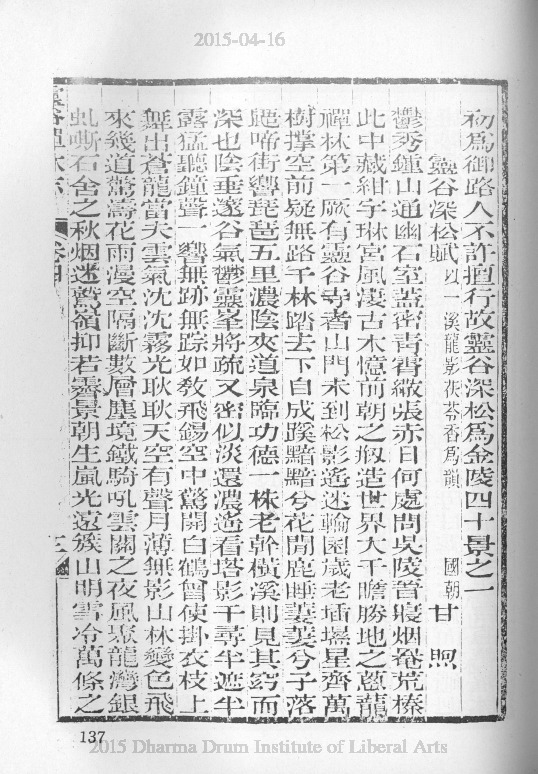 2015-04-16
初爲御路人不許擅行故靈谷深松爲金陵四十景之一
靈谷深松賦以一溪龍影茯苓香爲韻 國朝甘煦
鬱秀鍾山通幽石室蓋密靑霄繖張赤日何處問吳陵晉寢烟菴荒榛
此中藏紺宇琳宮風淒古木憶前朝之刱造世界大千瞻勝地之蔥蘢
禪林第一厥有靈谷寺者山門未到松影遙迷輪囷歲老堛壒星齊萬
樹撐空前疑無路千林踏去下自成蹊黯黯兮花開鹿睡萋萋兮子落
鼯啼街響琵琶五里濃陰夾道泉臨功德一株老幹橫溪則見其窈而
深也陰垂邃谷氣鬱靈峯將疏又密似淡還濃遙看塔影千尋半遮半
露猛聽鐘聲一響無跡無踪如敎飛錫空中驚開白鶴曾使掛衣枝上
舞出蒼龍當夫雲氣沈沈霧光耿耿天空有聲月薄無影山林變色飛
來幾道驚濤花雨漫空隔斷數層塵境鐵騎吼雲關之夜風聚龍灣銀
虬嘶石舍之秋烟迷鷲嶺抑若霽景朝生嵐光遠簇山明雪冷萬條之
靈谷禪林志 卷四 三
137
2015 Dharma Drum Institute of Liberal Arts